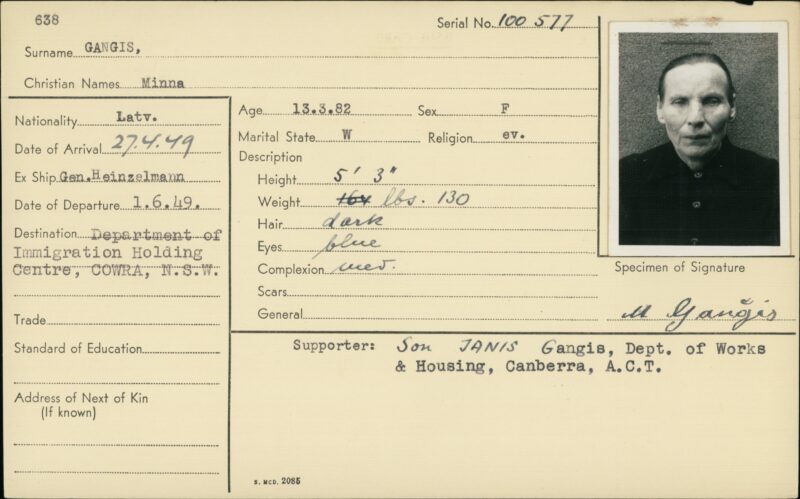 638
Serial No. 100 577
Surname GANGIS,
Christian Names Minna
Nationality Latv.
Date of Arrival 27.4.49
Ex Ship Gen. Heinzelmann
Date of Departure 1.6.49.
Destination Department of
Immigration Holding
Centre, COWRA, N.S.W.
Trade
Standard of Education
Address of Next of Kin
(If known)
Age 13.3.82 Sex F
Marital State W Religion ev.
Description
Height 5' 3"
Weight 164 lbs. 130
Hair dark
Eyes blue
Complexion med.
Scars
General
Specimen of Signature
M Gangis
Supporter: Son JANIS Gangis, Dept. of Works
& Housing, Canberra, A.C.T.
S. MCD. 2085